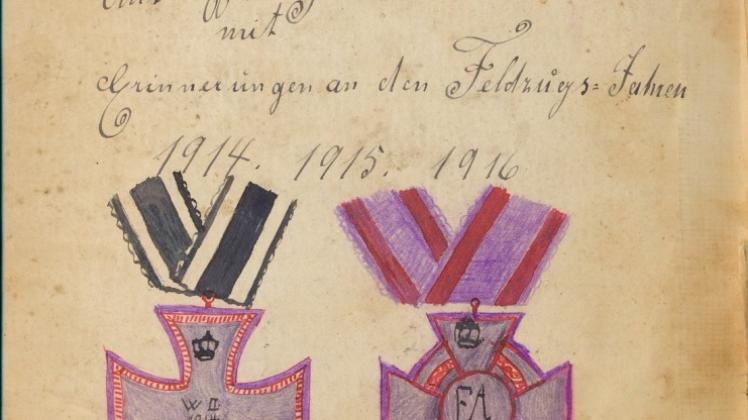 mit
Erinnerungen an den Feldzugs=Jahren
1914. 1915. 1916
W II
1914
FA